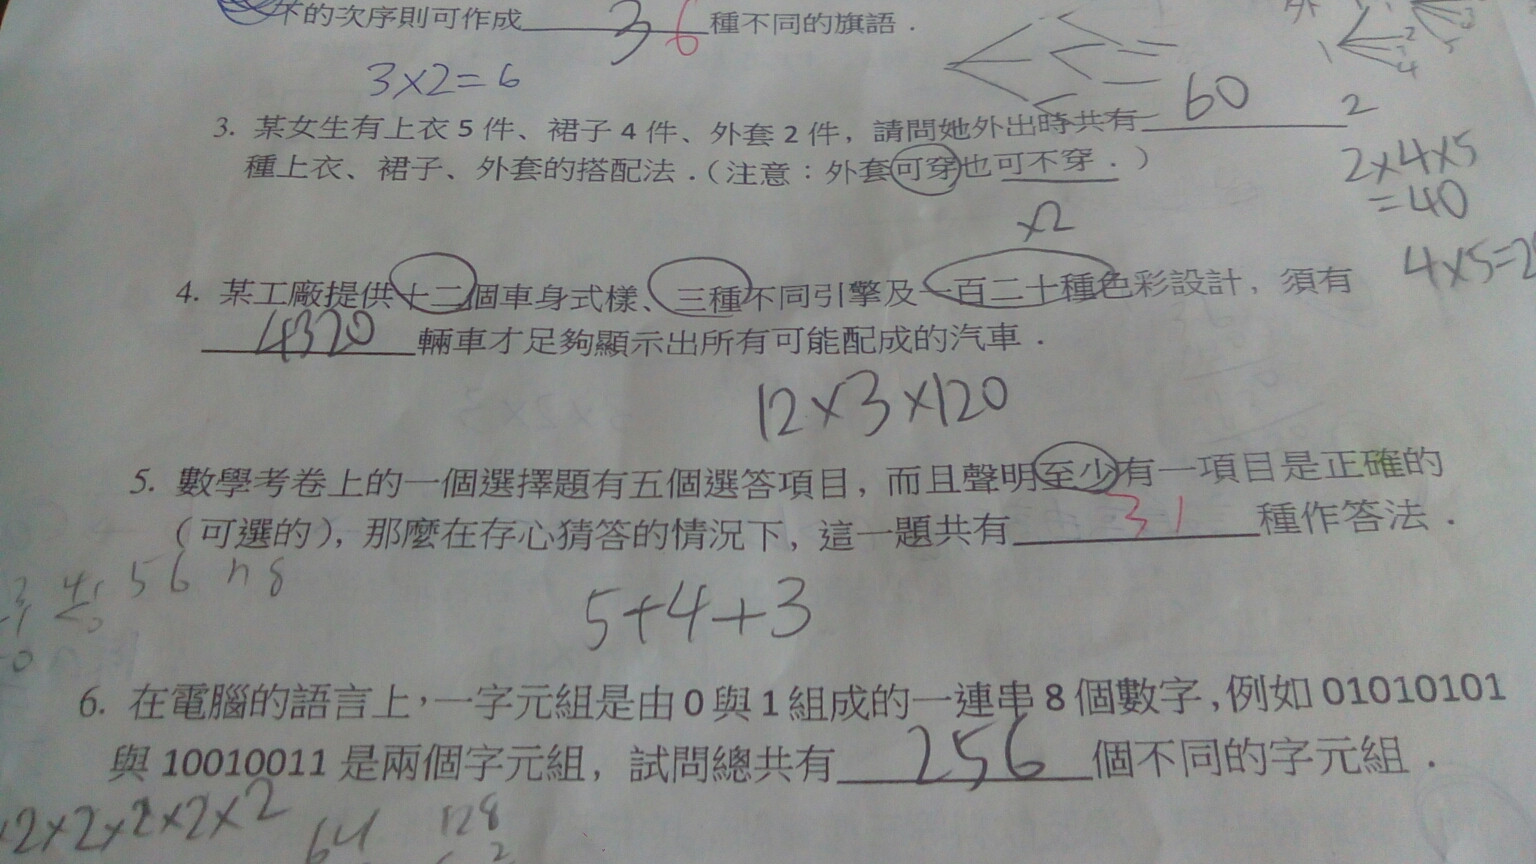 的次序則可作成 36 種不同的旗語．
3×2=6
3. 某女生有上衣 5 件、裙子 4 件、外套 2 件，請問她外出時共有 60
種上衣、裙子、外套的搭配法．（注意：外套可穿也可不穿．）
2×4×5
=40
×2
4×5=2
4. 某工廠提供十二個車身式樣、三種不同引擎及一百二十種色彩設計，須有
4320 輛車才足夠顯示出所有可能配成的汽車．
12×3×120
5. 數學考卷上的一個選擇題有五個選答項目，而且聲明至少有一項目是正確的
（可選的），那麼在存心猜答的情況下，這一題共有 31 種作答法．
5+4+3
6. 在電腦的語言上，一字元組是由 0 與 1 組成的一連串 8 個數字，例如 01010101
與 10010011 是兩個字元組，試問總共有 256 個不同的字元組．
2×2×2×2×2
64 128